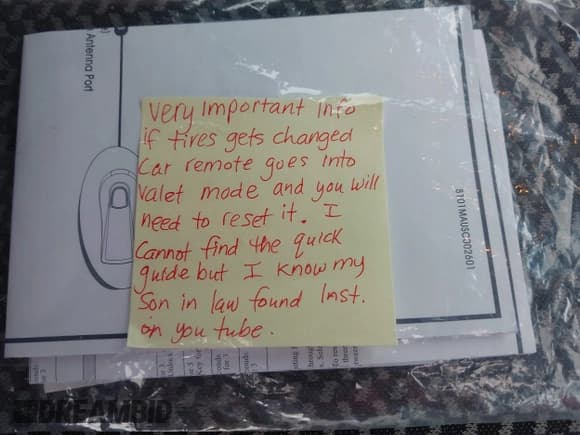 Antenna Port
Very Important Info
if tires gets changed
Car remote goes into
Valet mode and you will
need to reset it. I
Cannot find the quick
guide but I know my
Son in law found Inst.
on you tube.
5101MAUSC302601
DREAMBID